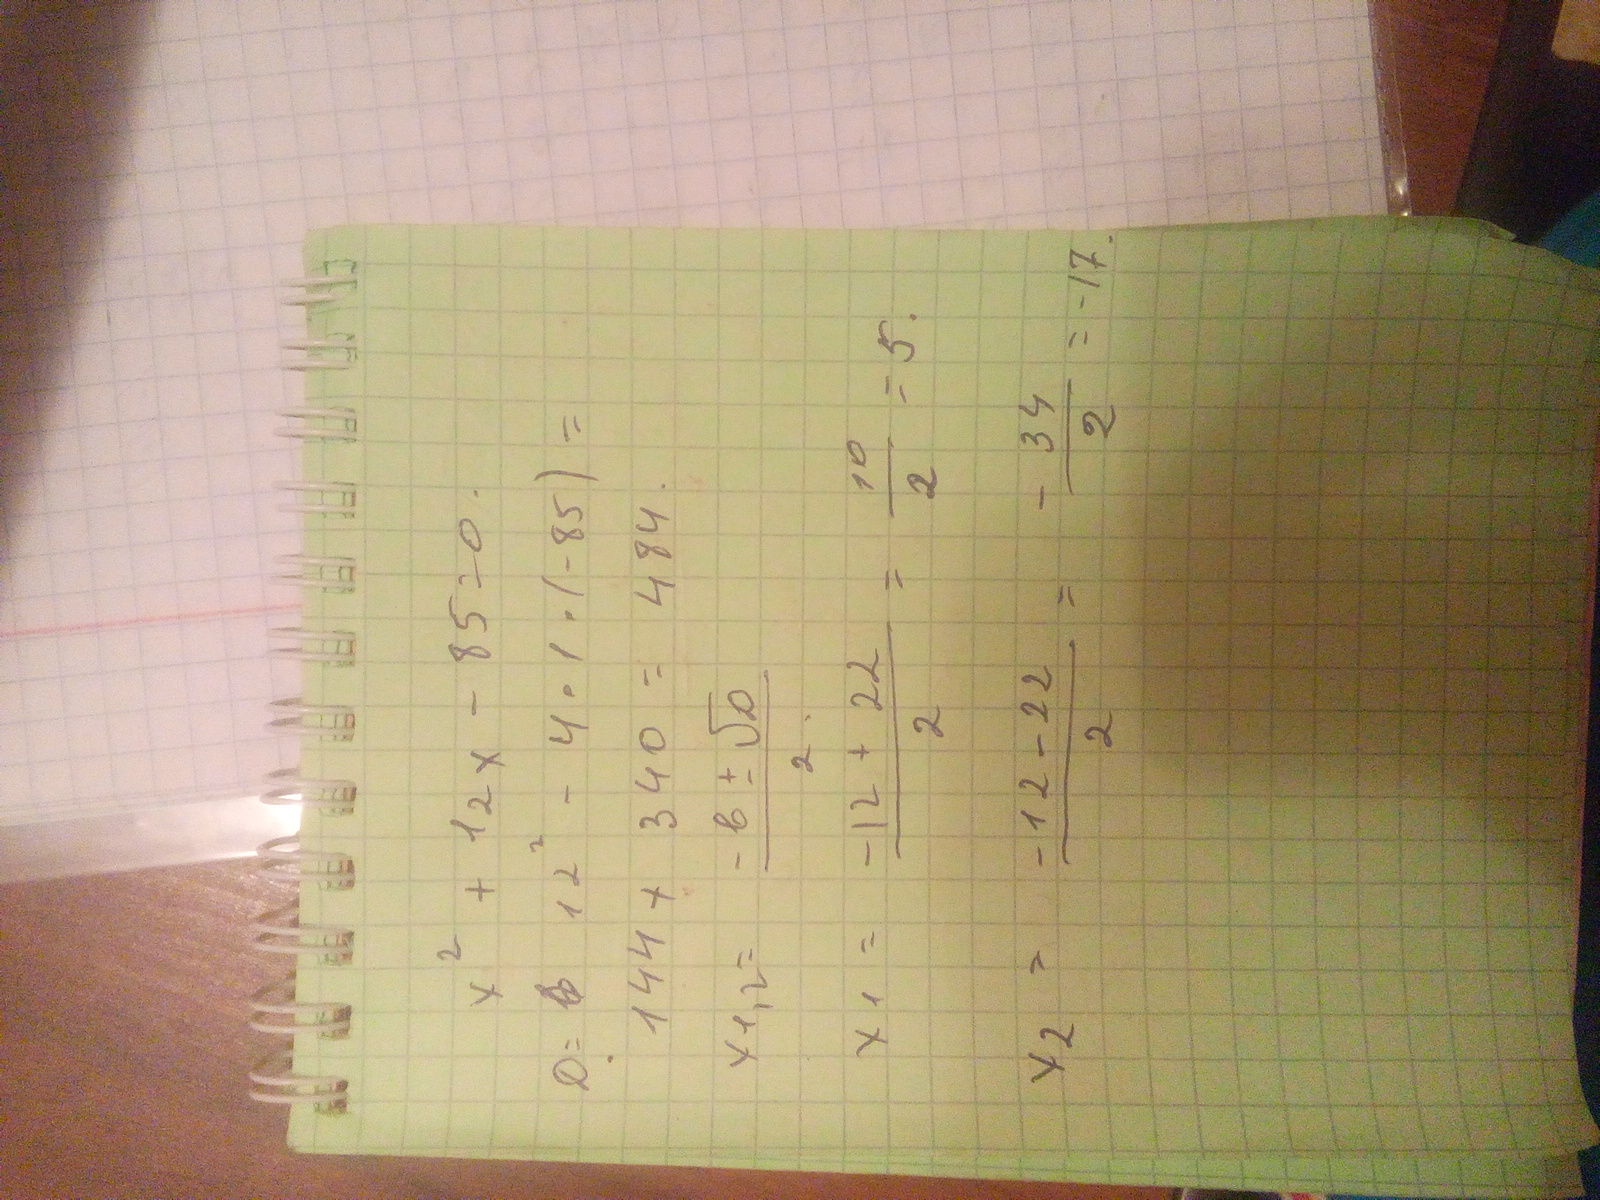 x² + 12x - 85 = 0.
D = 12² - 4 · 1 · (-85) =
144 + 340 = 484.
x1,2 = -b ± √D / 2.
x1 = -12 + 22 / 2 = 10 / 2 = 5.
x2 = -12 - 22 / 2 = -34 / 2 = -17.